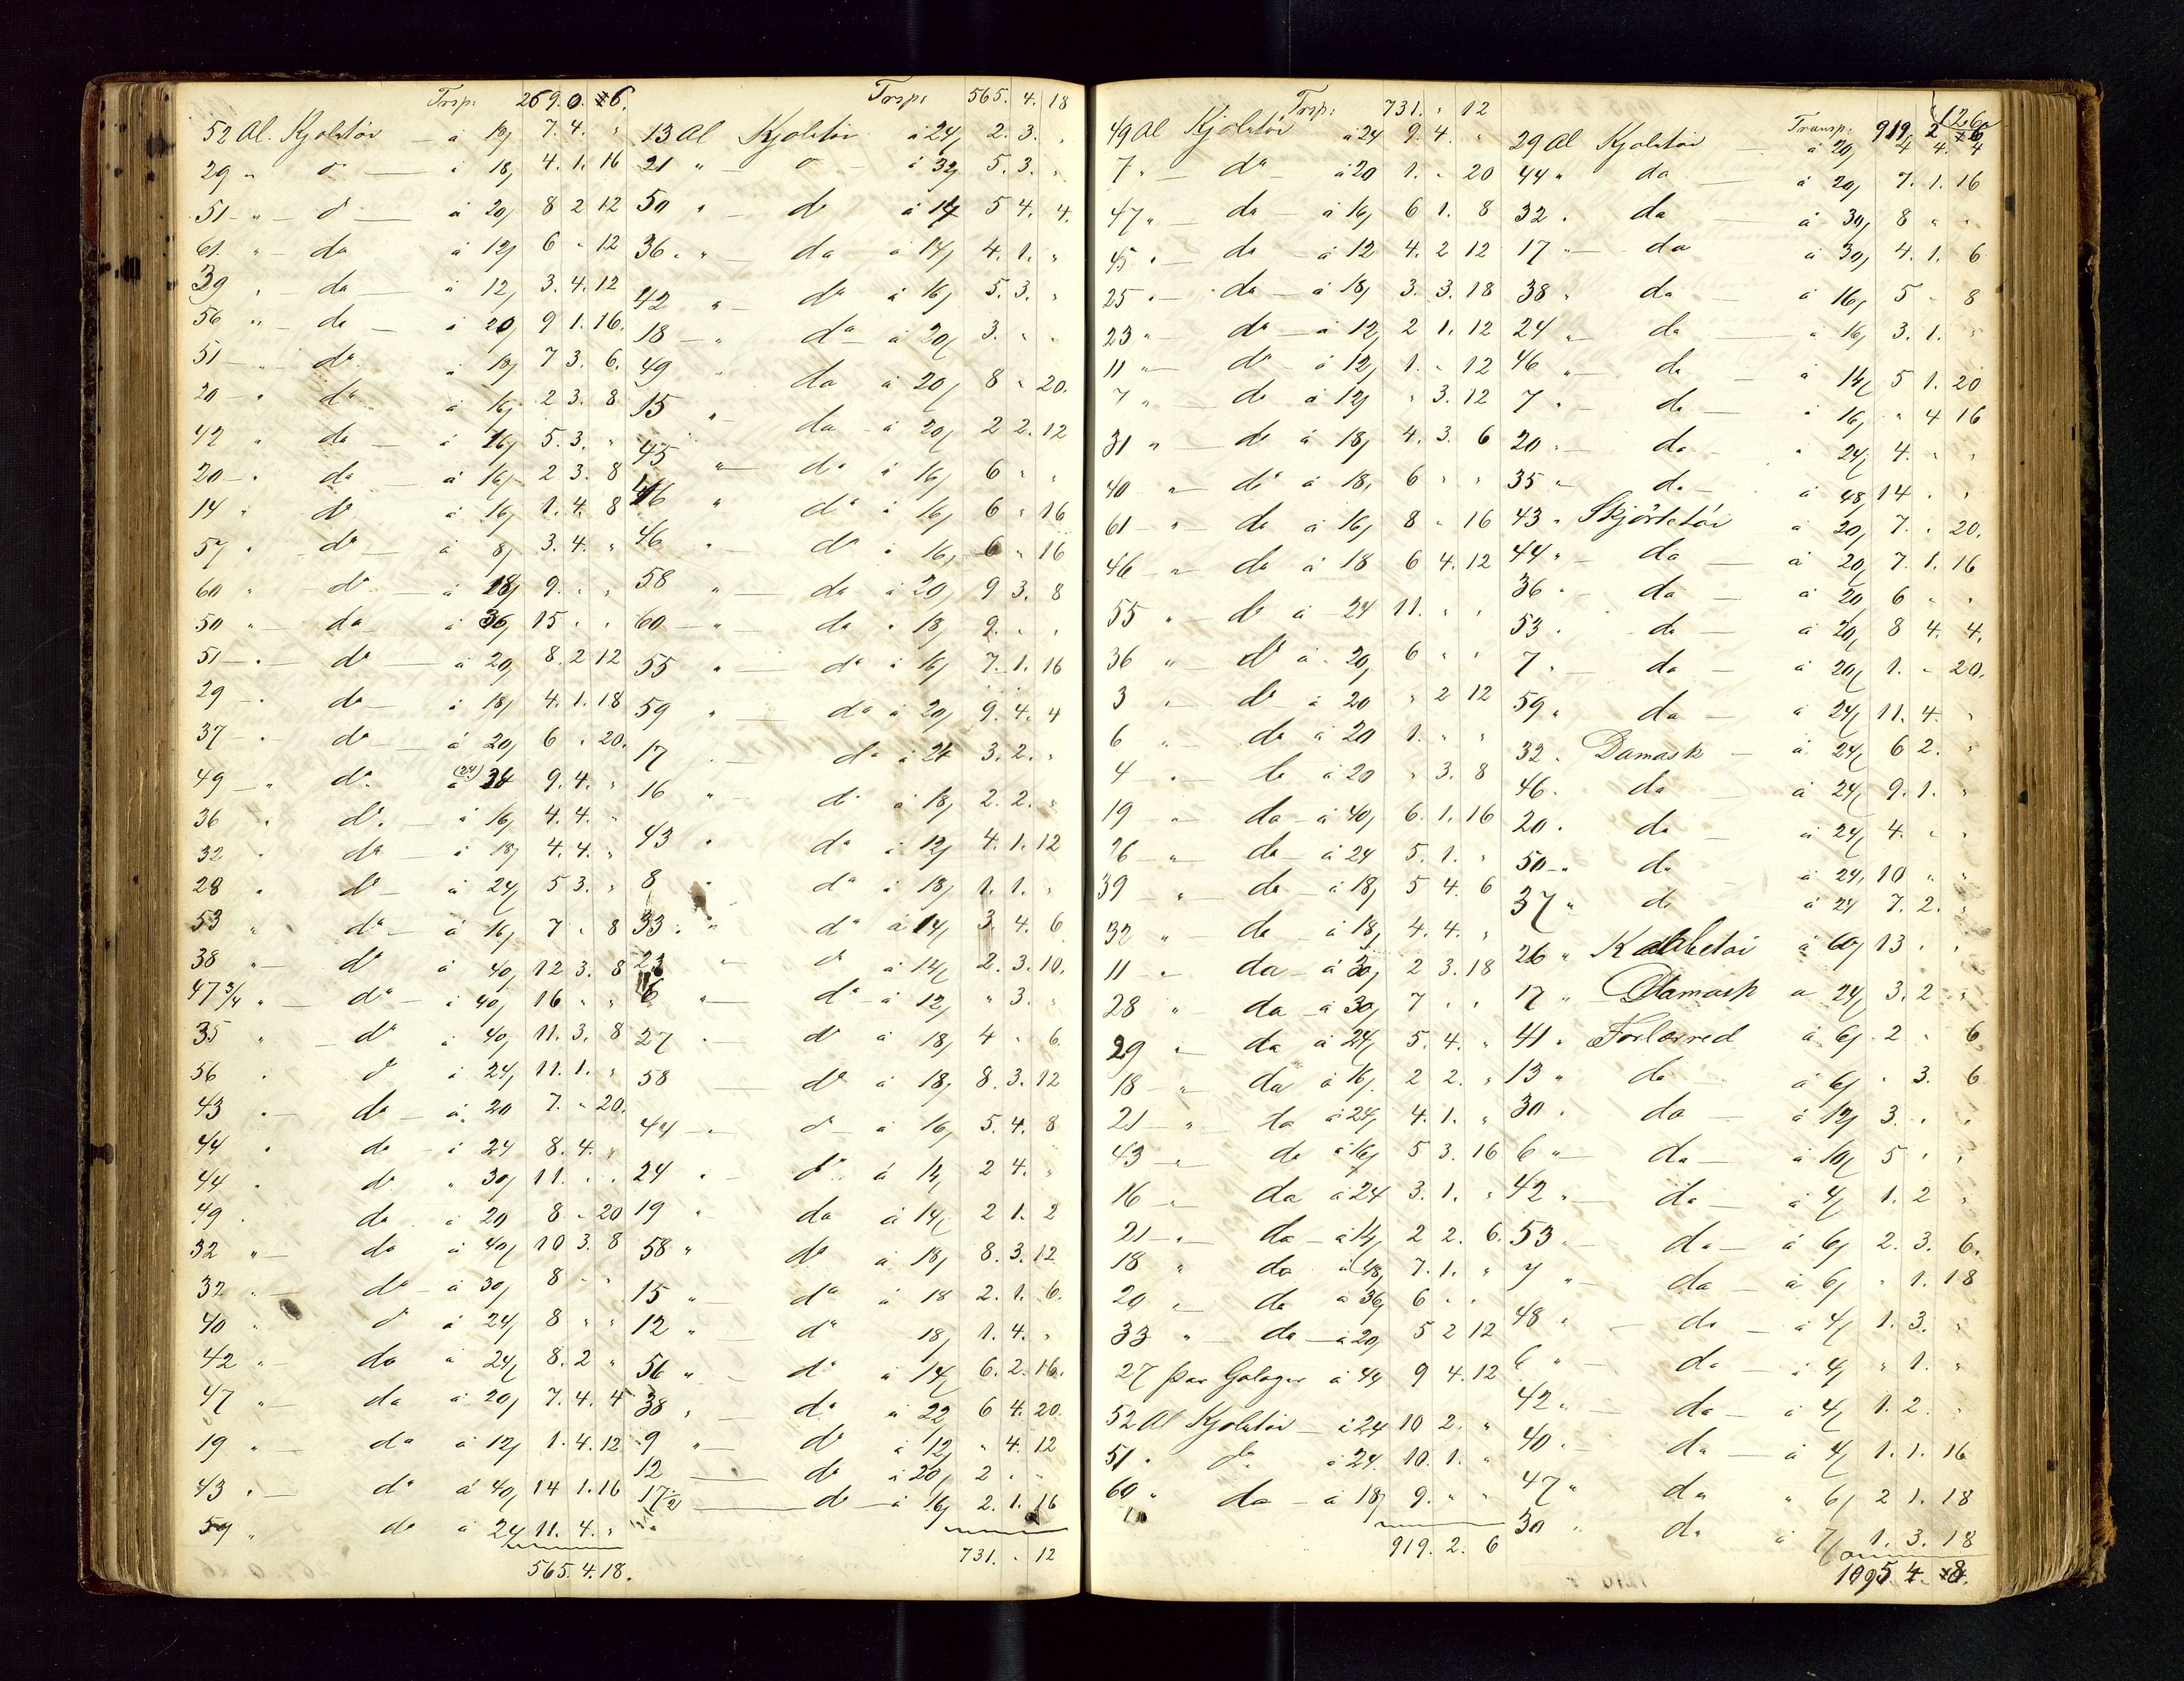 Trsp: 269.0.6.
52 Al. Kjoletöi — à 18, 7.4. "
29 " d° — à 18, 4.1.16
51 " d° — à 20, 8 2 12
61. " — do à 12, 6 " 12
39 " do — à 12, 3.4.12
56 " — do — à 20, 9 1.16.
51 — " do à 18, 7 3. 6.
20 — " do à 16, 2 3. 8
42 " do — à 16, 5.3. "
20 — " do — à 16, 2 3. 8
14 " do à 16, 1.4. 8
57 " do — à 8, 3.4. "
60 " do — à 18, 9. " "
50 " — do — à 36, 15 " "
51 — " do — à 20, 8.2 12
29 — " do — à 18, 4.1.18
37 — " do — à 20, 6 " 20.
49 — " do (24) à 34 9.4. "
36 " do. — à 16, 4.4. "
32 " do — à 18, 4.4. "
28 " do — à 24, 5 3. "
53 " do — à 16, 7 " 8
38 " — do à 40, 12 3. 8
47 3/4 " — do — à 40, 16 " "
35 " — do à 40, 11.3. 8
56 " d° à 24, 11.1. "
43 " — do — à 20 7. " 20.
44 " do — à 24 8.4. "
44 " do " 30, 11. " "
49 " do à 20 8 " 20
32 " — do à 40, 10 3. 8
32 " — do — à 30, 8 " "
40 " d° à 24, 8 " "
42 " — do à 24, 8.2 "
47 " — do à 20, 7.4. 4
19 " — do à 12, 1.4.12
43 " — do à 40, 14 1.16
59 " do à 24 11.4. "
565.4.18.
Trsp: 565.4.18
13 Al Kjoletöi à 24, 2.3. "
21 " — d° — à 32, 5.3. "
50 " — do à 14 5 4. 4.
36. " — do — à 14, 4.1. "
42 " — do à 16, 5.3. "
18 — " do — à 20, 3. " "
49 " do à 20, 8 " 20.
15 " do — à 20, 2 2.12
45 " — do à 16, 6 " "
46 " do à 16, 6 " 16
46 " do à 16, 6 " 16
58 " — do à 20, 9 3. 8
60 — " — do " 18, 9. " "
55 " — do à 16, 7.1.16
59 " do à 20, 9.4. 4
17 " — do à 24 3.2. "
16 " — do à 18, 2.2. "
43 " do à 12, 4.1.12
8 " do à 18, 1.1. "
33 " " do à 14, 3.4. 6
23 " — do à 14, 2.3.10.
6 " — do — à 12, " 3. "
27 " — do à 18, 4 " 6
58 — do à 18, 8.3.12
44 — " do — à 16, 5.4. 8
24 " — do à 14, 2 4. "
19 " do à 14, 2 1. 2
58 " do à 18, 8.3.12
15 " — do à 18 2.1. 6.
12 " do 18, 1.4. "
56 " — do à 14, 6.2.16.
38 " — do à 22, 6 4.20.
9 " — do à 12, " 4.12
12 — do à 20, 2 . "
17 1/2 — do — à 16, 2.1.16
731. " 12
Trsp: 731. " 12
49 Al Kjoletöi à 24 9.4. "
7 " — do — à 20 1. " 20
47 " — do — à 16, 6 1. 8
45 " — do — à 12 4.2 12
25 " — do — à 18, 3.3.18
23 " — do — à 12, 2 1.12
11 " — do — à 12, 1. " 12
7 " — do à 12, " 3.12
31 " — do à 18, 4.3. 6
40 " — do à 18, 6 " "
61 — " — do à 16, 8 " 16
46 — " — do à 18 6 4.12
55 " — do à 24 11. " "
36 " — do à 20, 6 " "
3 " — do à 20 " 2 12
6 " — do à 20 1. " "
4 " — do à 20 " 3. 8
19 — " do — à 40, 6.1.16
26 — " — do — à 24 5.1. "
39 " — do — à 18, 5 4. 6
32 " do — à 18, 4.4. "
11 — " do — à 30, 2 3.18
28 " — do — à 30, 7 " "
29 " do à 24, 5.4. "
18 — " do à 16, 2 2. "
21 — " do à 24, 4.1. "
43 — " do à 16, 5 3.16
16 — " do à 24 3.1. "
21 — " do — à 14, 2 2. 6.
18 " do à 48, 7.1. "
20 " — do à 36, 6 " "
33 " — do — à 20, 5 2 12
27 Par Galoger à 44 9 4.12
52 Al Kjoletöi — à 24 10 2. "
51 " do à 24 10.1. "
60 " do — à 18, 9. " "
919.2.6
1260
Transp: 919.2 6
29 Al Kjoletöi — à 20, 4 4. 4
44 " do — à 20, 7.1.16
32 " do — à 30, 8 " "
17 " — do à 30, 4.1. 6
38 " do — à 16, 5 " 8
24 " — do — à 16, 3.1. "
46 " — do — à 14, 5 1.20
7 " — do — à 16, " 4 16
20 " — do — " 24, 4. " "
35 " do — à 48, 14 . "
43 " Skjörtetöi à 20, 7. " 20.
44 " — do — à 20, 7.1.16
36 " — do — à 20, 6 " "
53 " do — à 20, 8 4. 4.
7 " do — à 20, 1. " 20.
59 " do — à 24, 11.4. "
32 " Damask — à 24, 6 2. "
46 " do — à 24, 9.1. "
20 " do — à 24, 4. " "
50 — " do — à 24, 10 " "
37 " do à 24 7.2. "
26 " Kaabetöi à 60, 13. "
17 " Damask à 24, 3.2 "
41 " Forlærred à 6, 2 " 6
13 " do à 6, " 3. 6
30 " do — à 12, 3. " "
6 " — do — à 10, 5 " "
42 " — do — à 4, 1.2 "
53 " — do — à 6, 2.3. 6.
7 " — do — à 6, " 1.18
48 " — do — à 4, 1.3. "
6 " — do — à 4, " 1. "
42 " — do — à 4, 1.2. "
40 " — do — à 4, 1.1.16
47 " do " 6, 2 1.18
30 " do à 7, 1.3.18
1095.4. 8.